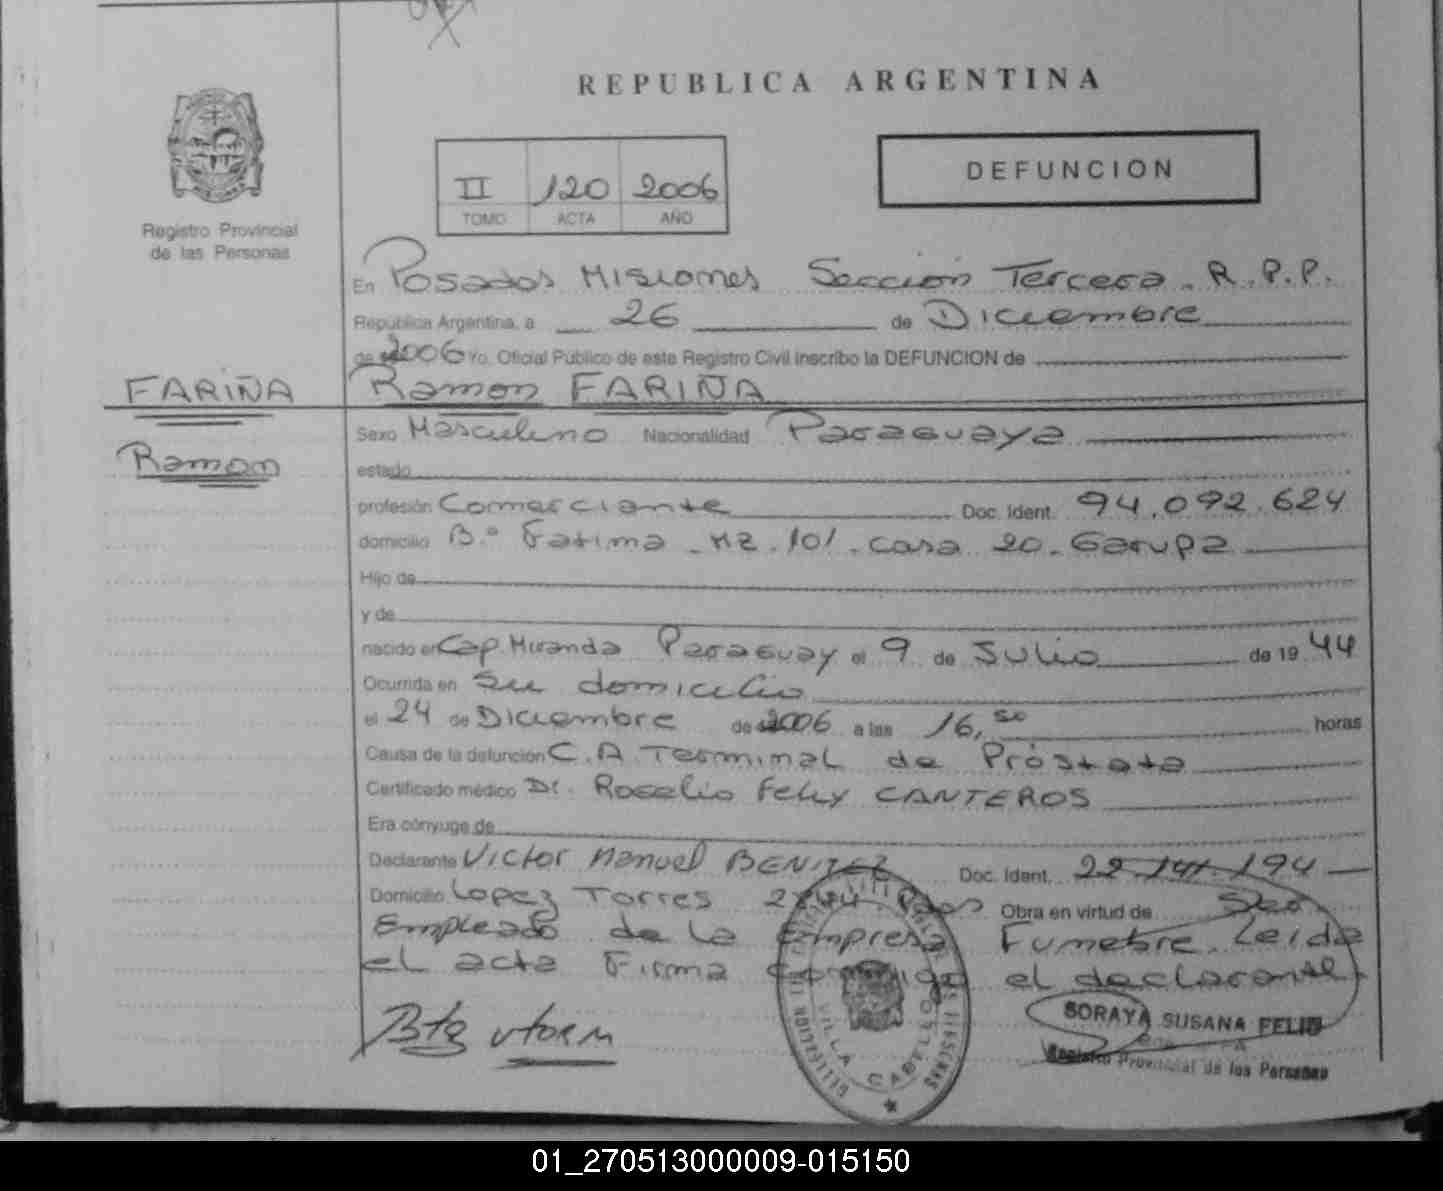 REPUBLICA ARGENTINA
DEFUNCION
II 120 2006
TOMO ACTA AÑO
Registro Provincial
de las Personas
En Posadas Misiones Sección Tercera. R.P.P.
República Argentina, a 26 de Diciembre
de 2006 Yo. Oficial Público de este Registro Civil inscribo la DEFUNCION de
FARIÑA
Ramon
Ramon FARIÑA
Sexo Masculino Nacionalidad Paraguaya
estado
profesión Comerciante Doc. Ident. 94.092.624
domicilio B.º Fatima. MZ. 101. casa 20. Garupa
Hijo de
y de
nacido en Cap. Miranda Paraguay el 9 de Julio de 19 44
Ocurrida en Su domicilio
el 24 de Diciembre de 2006 a las 16, horas
Causa de la defunción C.A. Terminal de Próstata
Certificado médico Dr. Rogelio Felix CANTEROS
Era cónyuge de
Declarante Victor Manuel BENITEZ Doc. Ident. 22. 194
Domicilio Lopez Torres Obra en virtud de Ser
Empleado de la Empresa Fúnebre. Leida
el acta Firma Conmigo el declarante.
SORAYA SUSANA FELIU
Registro Provincial de las Personas
VILLA CABELLO
01_270513000009-015150